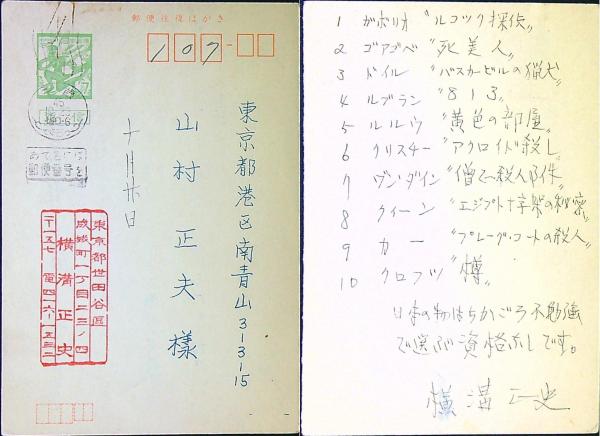 郵便往復はがき
107-
東京都港区南青山3-3-15
山村正夫様
十月廿日
あて名には
郵便番号を
東京都世田谷区
成城町一丁目二三ノ四
横溝正史
〒一五七 電四一六-一五三二
1 ガボリオ “ルコック探偵〟
2 ゴアゴベ “死美人〟
3 ドイル “バスカービルの猟犬〟
4 ルブラン “813〟
5 ルルウ “黄色の部屋〟
6 クリスチー “アクロイド殺し〟
7 ヴン・ダイン “僧正殺人事件〟
8 クイーン “エジプト十字架の秘密〟
9 カー “プレーグ・コートの殺人〟
10 クロフツ “樽〟
日本の物はちかごろ不勉強
で選ぶ資格なしです。
横溝正史